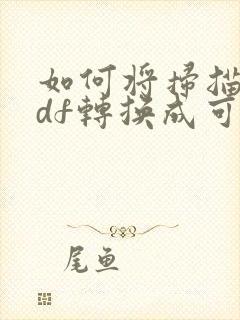 如何将掃描
df轉換成可
尾鱼